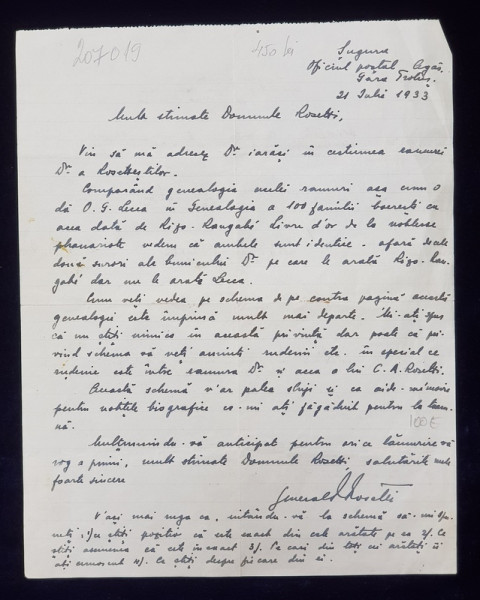 207019
450 lei
Oficiul poștal Agăș.
Gara Trotuș
21 Iulie 1933
Mult stimate Domnule Rosetti,
Viu să mă adresez Dv. iarăși în cestiunea ramurei
Dv. a Rosetteștilor.
Comparând genealogia unei ramuri așa cum o
dă O. G. Lecca în Genealogia a 100 familii boerești cu
acea dată de Rizo-Rangabé Livre d'or de la noblesse
phanariote vedem că ambele sunt identice afară de cele
două surori ale bunicului Dv. pe care le arată Rizo-Ran-
gabé dar nu le arată Lecca.
Cum veți vedea pe schema de pe contra pagină această
genealogie este împinsă mult mai departe. Mi-ați spus
că nu știți nimica în această privință dar poate că pri-
vind schema vă veți aminti rudenii etc. în special ce
rudenie este între ramura Dv. și acea a lui C. A. Rosetti.
Această schemă v'ar putea sluji și ca aide-mémoire
pentru notițele biografice ce mi ați făgăduit pentru la toam-
nă.
100 E
Mulțumindu-vă anticipat pentru orice lămurire vă
rog a primi, mult stimate Domnule Rosetti salutările mele
foarte sincere
General Rosetti
V'ași mai ruga ca, uitându-vă la schemă să-mi spu-
neți 1/ ce știți pozitiv că este exact din cele arătate pe ea 2/. Ce
știți asemenea că este inexact 3/. Pe cari din toți cei arătați îi
ați cunoscut 4/. Ce știți despre fiecare din ei.